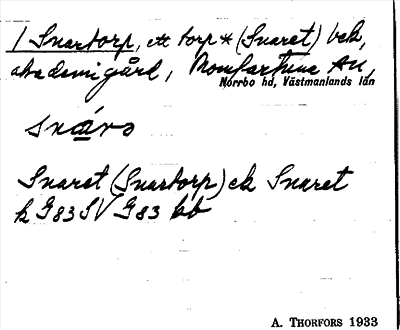 / Snartorp, ett torp * (Snaret) bek,
akademigård, Romfartuna AU,
Norrbo hd, Västmanlands län
snáro
Snaret (Snartorp) ek Snaret
k G83 SV G83 bb
A. THORFORS 1933